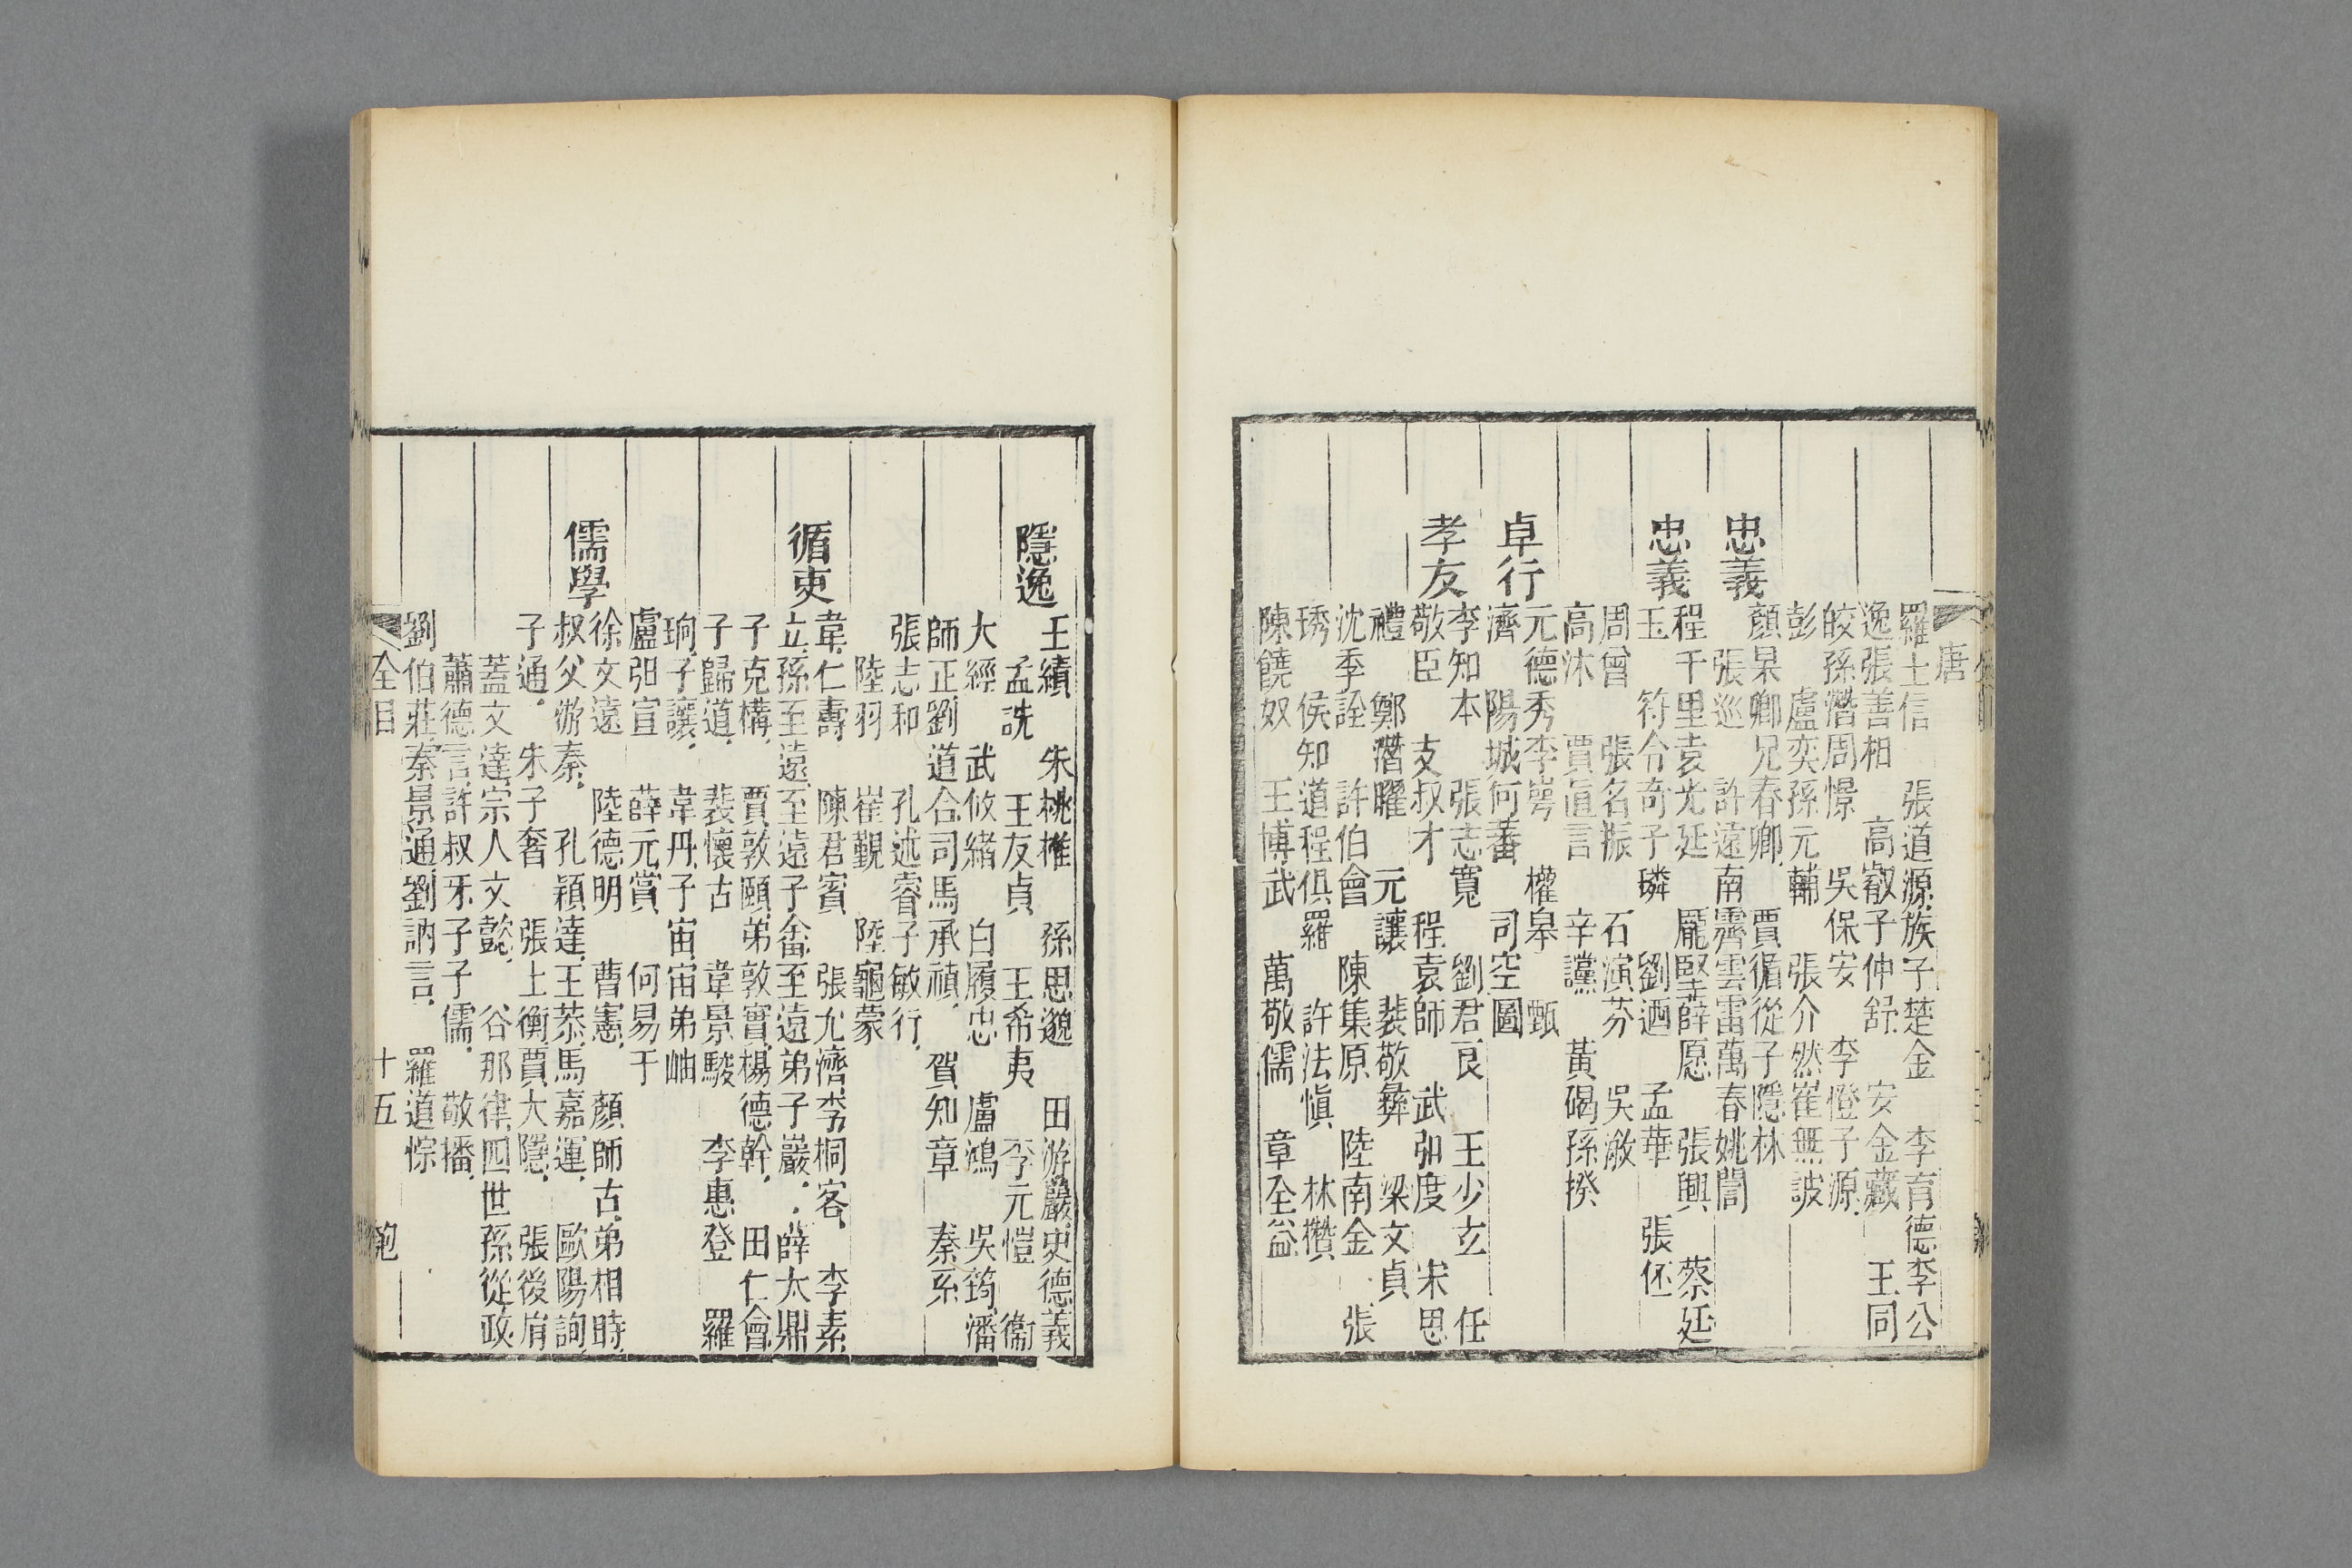 唐
羅士信 張道源族子楚金 李育德李公
逸張善相 高叡子仲舒 安金藏 王同
皎孫潛周憬 吳保安 李憕子源
彭 盧奕孫元輔 張介然崔無詖
顏杲卿兄春卿 賈循從子隱林
忠義
張巡 許遠南霽雲雷萬春姚誾
程千里袁光廷 龎堅薛愿 張興 蔡廷
忠義
玉 符令奇子璘 劉迺 孟華 張伾
周曾 張名振 石演芬 吳漵
高沐 賈直言 辛讜 黃碣孫揆
元德秀李蕚 權皋 甄
卓行
濟 陽城何蕃 司空圖
李知本 張志寬 劉君良 王少玄 任
孝友
敬臣 支叔才 程袁師 武弘度 宋思
禮 鄭潛曜 元讓 裴敬彝 梁文貞
沈季詮 許伯會 陳集原 陸南金 張
琇 侯知道程俱羅 許法愼 林攢
陳饒奴 王博武 萬敬儒 章全益
隱逸
王績 朱桃椎 孫思邈 田游巖史德義
孟詵 王友貞 王希夷 李元愷 衞
大經 武攸緖 白履忠 盧鴻 吳筠潘
師正劉道合司馬承禎 賀知章 秦系
張志和 孔述睿子敏行
陸羽 崔覲 陸龜蒙
循吏
韋仁壽 陳君賓 張允濟李桐客 李素
立孫至遠至遠子畬至遠弟子巖 薛大鼎
子克構 賈敦頤弟敦實楊德幹 田仁會
子歸道 裴懷古 韋景駿 李惠登 羅
珦子讓 韋丹子宙宙弟岫
盧弘宣 薛元賞 何易于
儒學
徐文遠 陸德明 曹憲 顏師古弟相時
叔父游秦 孔穎達王恭馬嘉運 歐陽詢
子通 朱子奢 張士衡賈大隱 張後胤
蓋文達宗人文懿 谷那律四世孫從政
蕭德言許叔牙子子儒 敬播
劉伯莊秦景通劉訥言 羅道悰
全目 十五